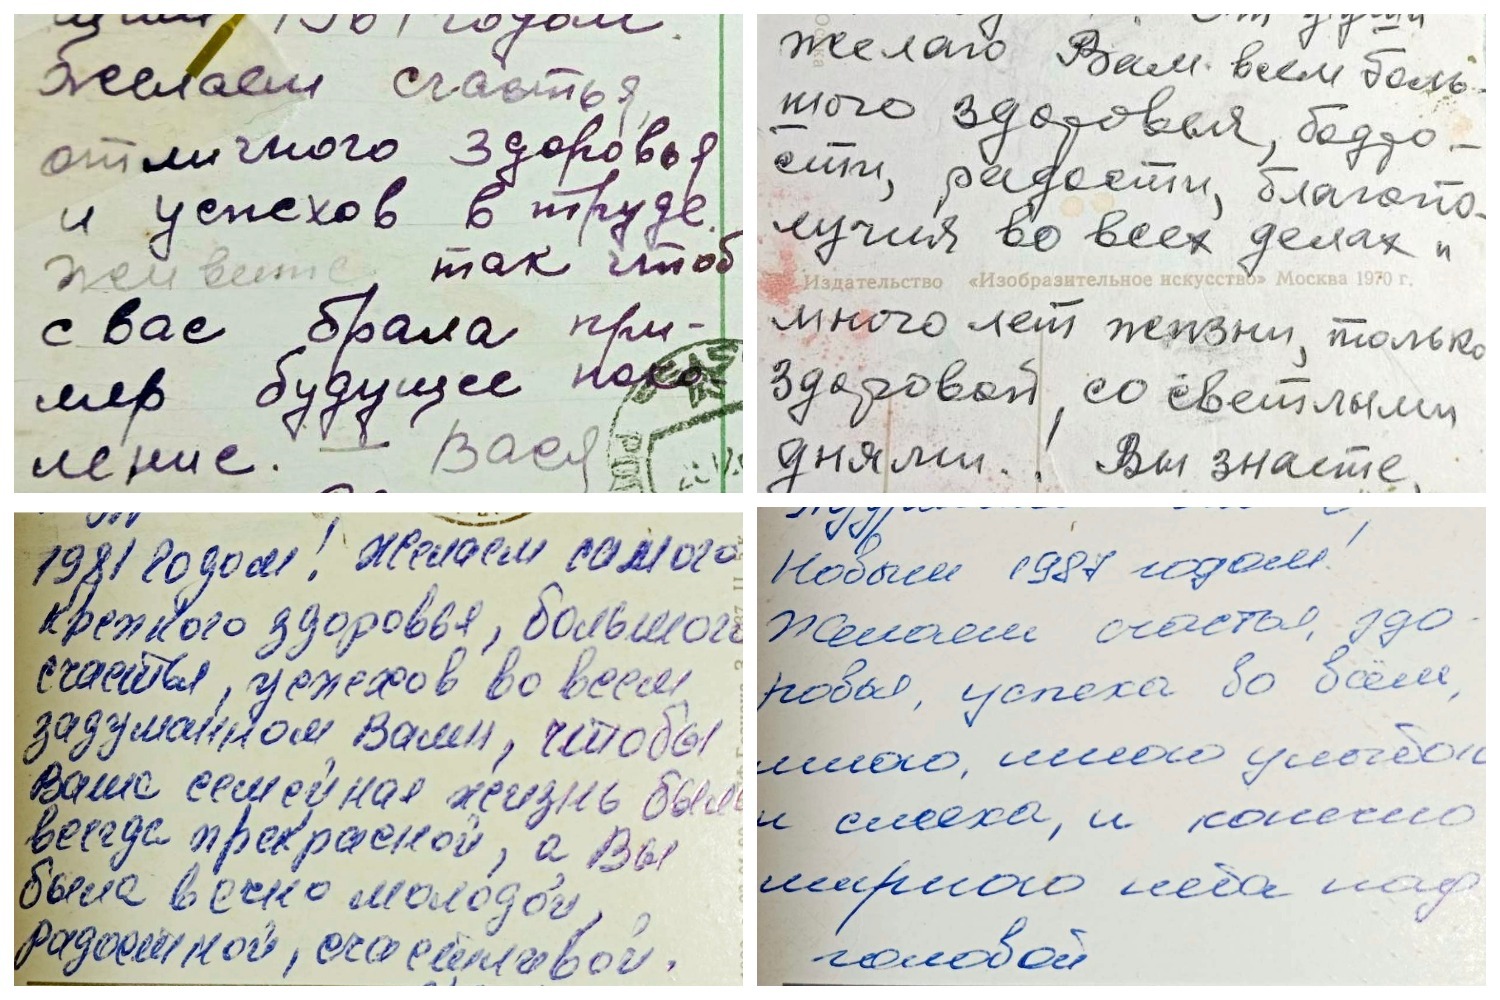 1961 годом.
Желаем счастья,
отличного здоровья
и успехов в труде.
Живите так чтоб
с вас брала при-
мер будущее поко-
ление. Вася
От души
желаю Вам всем боль-
шого здоровья, бодро-
сти, радости, благопо-
лучия во всех делах и
Издательство «Изобразительное искусство» Москва 1970 г.
много лет жизни, только
здоровой, со светлыми
днями..! Вы знаете,
1981 годом! Желаем самого
крепкого здоровья, большого
счастья, успехов во всем
задуманном Вами, чтобы
Ваша семейная жизнь была
всегда прекрасной, а Вы
была вечно молодой,
радостной, счастливой.
Новым 1987 годом!
Желаем счастья, здо-
ровья, успеха во всём,
много, много улыбок
и смеха, и конечно
мирного неба над
головой